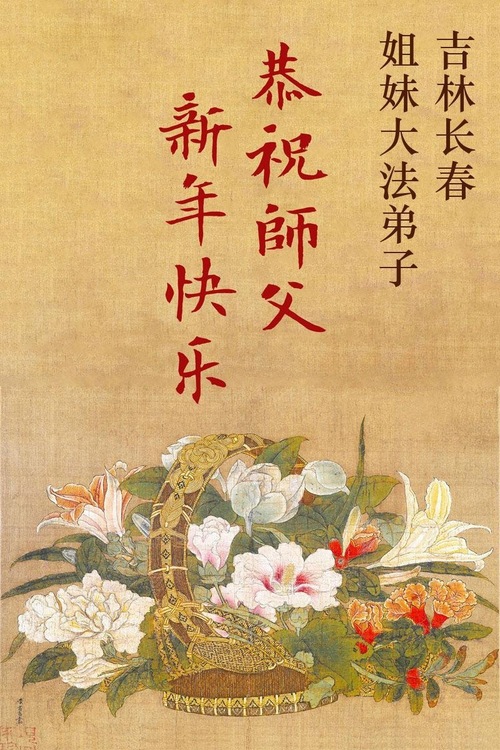 吉林长春
姐妹大法弟子
恭祝師父
新年快乐